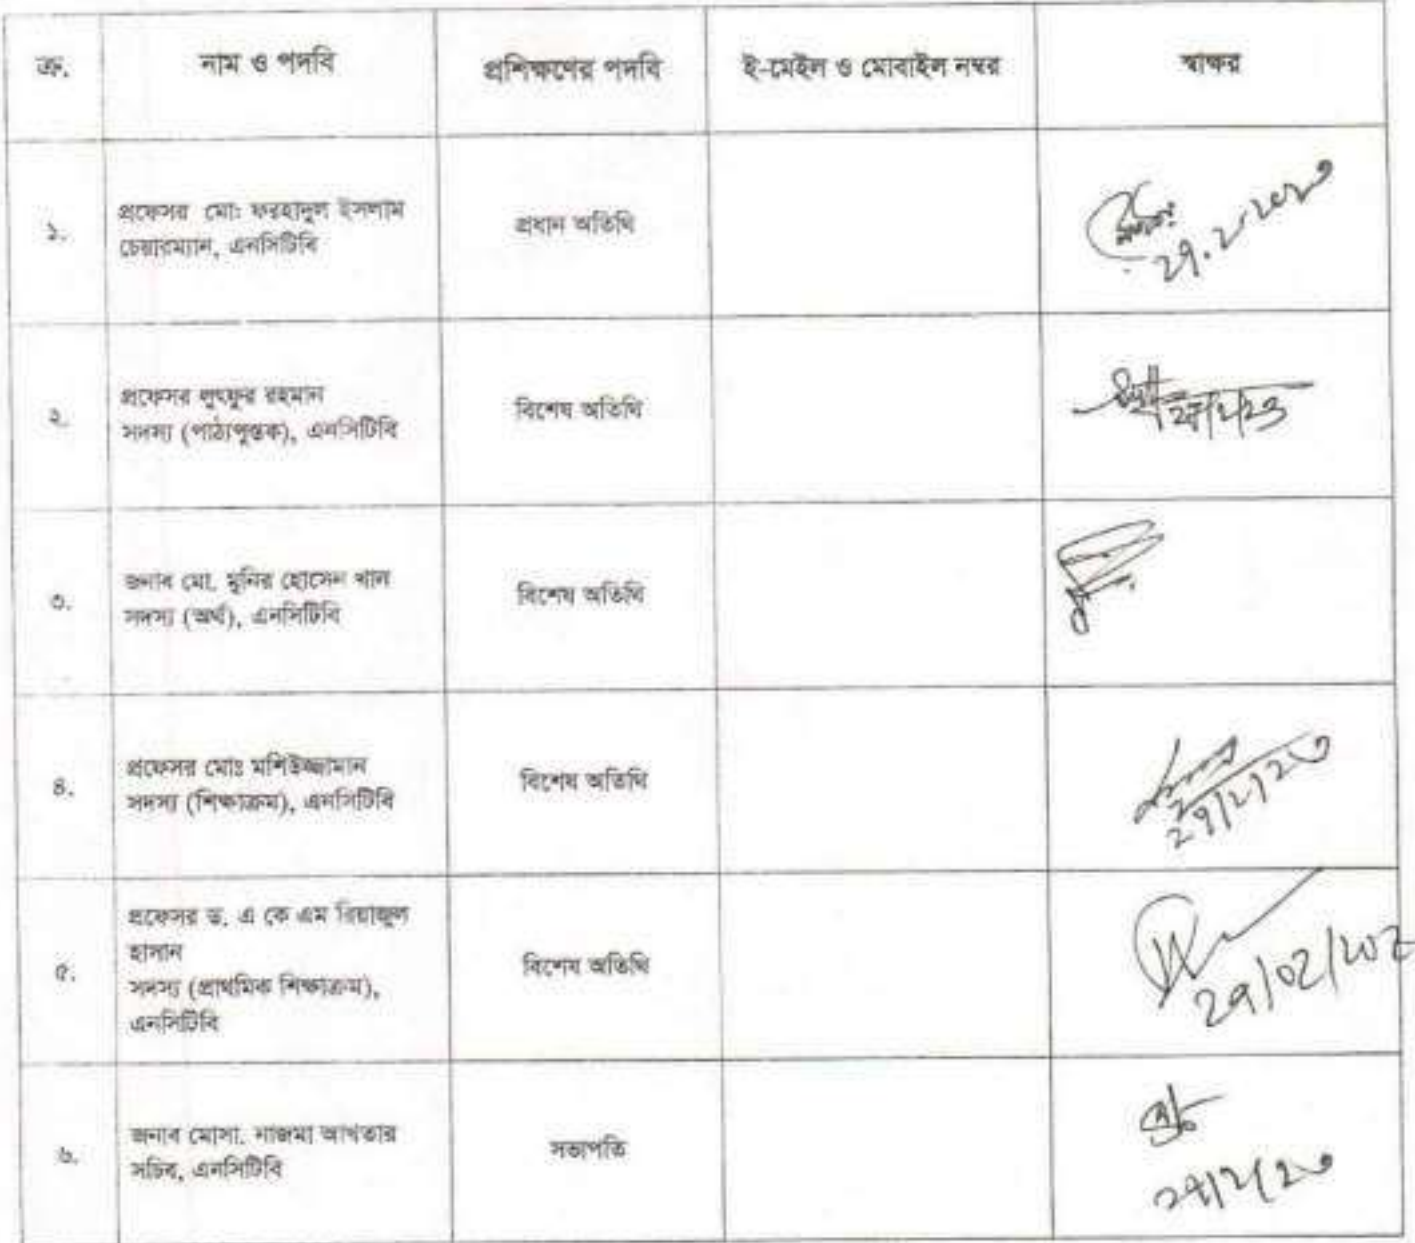 ক্র.
নাম ও পদবি
প্রশিক্ষণের পদবি
ই-মেইল ও মোবাইল নম্বর
স্বাক্ষর
১.
প্রফেসর মো: ফরহাদুল ইসলাম
চেয়ারম্যান, এনসিটিবি
প্রধান অতিথি
২.
প্রফেসর লুৎফুর রহমান
সদস্য (পাঠ্যপুস্তক), এনসিটিবি
বিশেষ অতিথি
২৭/২/২৩
৩.
জনাব মো. মুনির হোসেন খান
সদস্য (অর্থ), এনসিটিবি
বিশেষ অতিথি
৪.
প্রফেসর মোঃ মশিউজ্জামান
সদস্য (শিক্ষাক্রম), এনসিটিবি
বিশেষ অতিথি
২৭/২/২৩
৫.
প্রফেসর ড. এ কে এম রিয়াজুল
হাসান
সদস্য (প্রাথমিক শিক্ষাক্রম),
এনসিটিবি
বিশেষ অতিথি
৬.
জনাব মোসা. নাজমা আখতার
সচিব, এনসিটিবি
সভাপতি
২৭/২/২৩